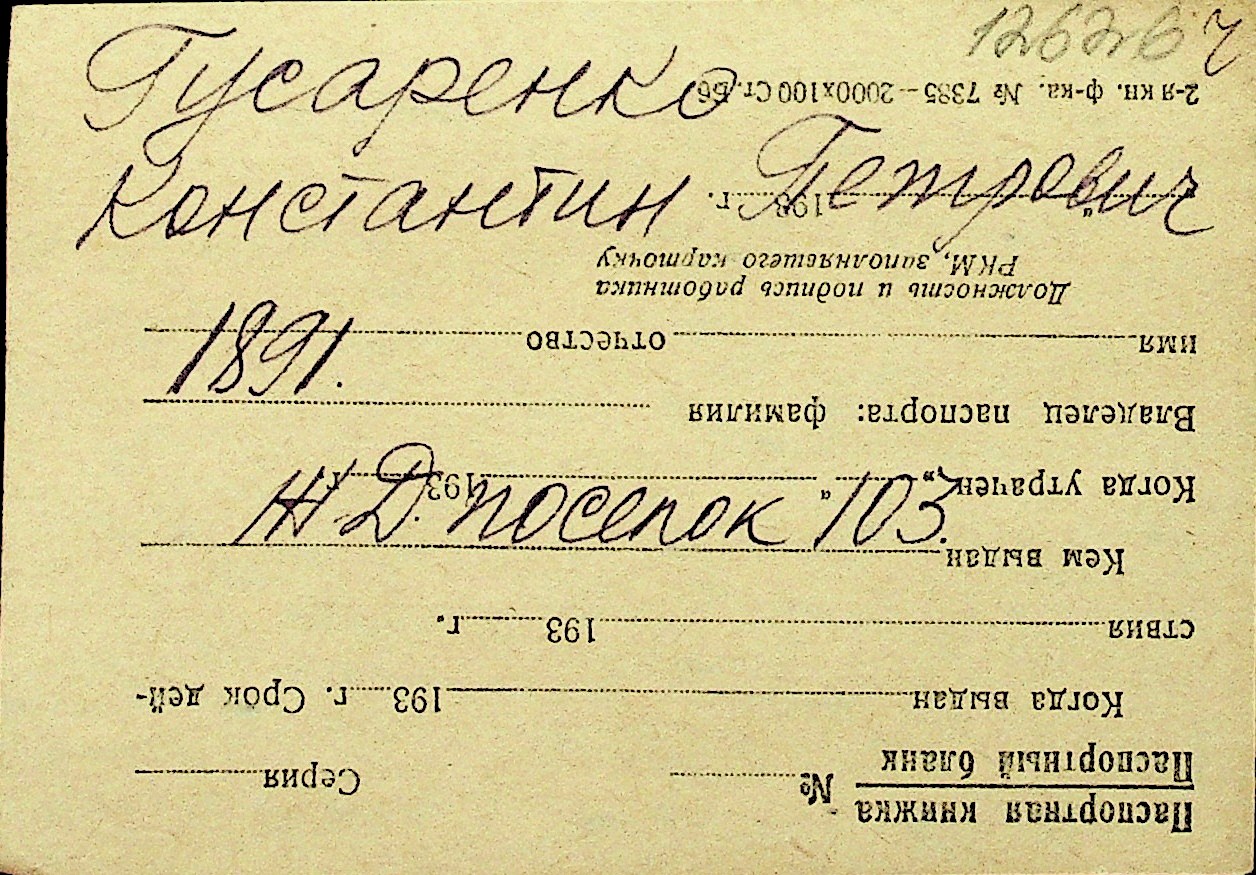 12626 ч
Гусаренко
Константин Петрович
1891.
ЖД. поселок 103.
Паспортная книжка
Паспортный бланк
№ Серия
Когда выдан 193 г. Срок дей-
ствия 193 г.
Кем выдан
Когда утрачен „ “ 193 г.
Владелец паспорта: фамилия
имя отчество
Должность и подпись работника
РКМ, заполнявшего карточку
„ “ 193 г.
2-я кн. ф-ка. № 7385 — 2000х100 Ст. Бб